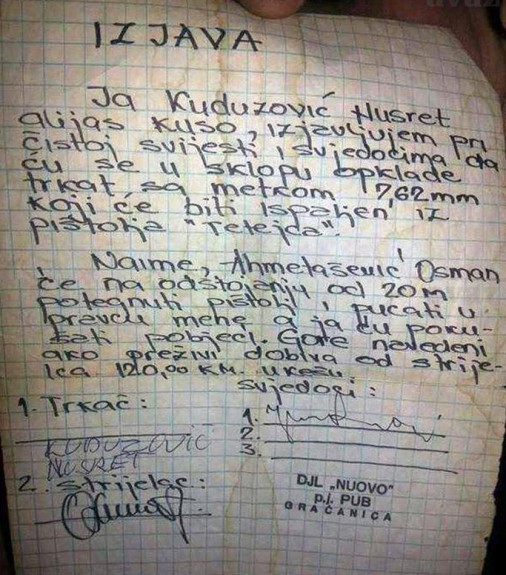 IZJAVA
Ja Kuduzović Husret
alijas Kuso, izjavljujem pri
čistoj svijesti i svjedocima da
ću se u sklopu opklade
trkat sa metkom 7,62mm
koji će biti ispaljen iz
pištolja "Tetejda".
Naime, Ahmetašević Osman
će na odstojanju od 20m
potegnuti pištolj i pucati u
pravcu mene a ja ću poku-
šati pobjeći. Gore navedeni
ako preživi dobiva od strije-
lca 120,00 KM.
svjedoci:
1. Trkač:
1.
2.
3.
KUDUZOVIĆ
HUSRET
2. strijelac:
DJL „NUOVO"
p.j. PUB
GRAČANICA